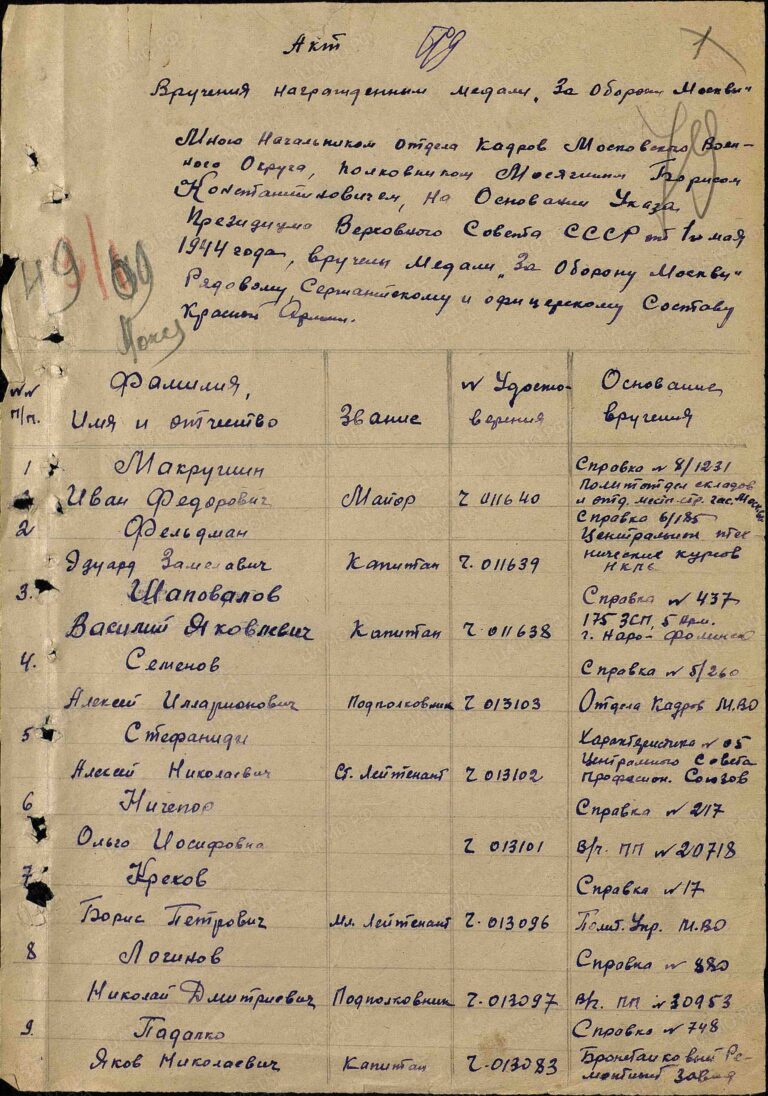 Акт
1
Вручения награжденным медали „За Оборону Москвы"
Мною Начальником отдела Кадров Московского Воен-
ного Округа, полковником Мосягиным Борисом
Константиновичем, на Основании Указа
Президиума Верховного Совета СССР от 1го мая
1944 года, вручены Медали „За Оборону Москвы"
Рядовому, Сержантскому и офицерскому Составу
Красной Армии.
№№ п/п. Фамилия, Имя и отчество Звание № Удосто- верения Основание вручения
1 Макрушин Справка № 8/1231
Иван Федорович Майор Ч 011640 Политотдел складов
2 Фельдман Справка 6/185
Эдуард Капитан Ч. 011639 курсов
НКПС
3. Шаповалов Справка № 437
Василий Яковлевич Капитан Ч. 011638 175 ЗСП, 5
г. Наро-Фоминск
4. Семенов Справка № 5/260
Алексей Илларионович Подполковник Ч 013103 Отдела Кадров М.ВО
5 Стефаниди Характеристика № 05
Алексей Николаевич Ст. Лейтенант Ч. 013102 Центрального Совета
Професион. Союзов
6 Ничепор Справка № 217
Ольга Иосифовна Ч 013101 В/ч. ПП № 20718
7. Креков Справка № 17
Борис Петрович Мл. Лейтенант Ч. 013096 Полит. Упр. М.ВО
8 Логинов Справка № 880
Николай Дмитриевич Подполковник Ч. 013097 В/ч. ПП № 30953
9. Падалко Справка № 748
Яков Николаевич Капитан Ч. 013083 Бронетанковый Ре-
монтный Завод